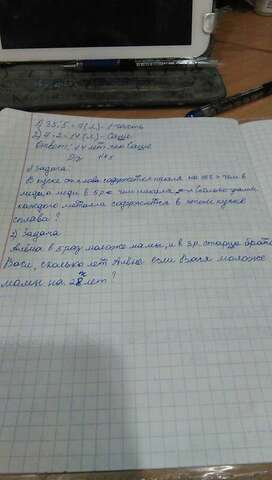 1) 35:5=7(л)-1 часть
2) 7·2=14(л)-Саше
Ответ: 14 лет Саше
Д/з
1) Задача
В куске сплава содержится никеля на
меди, а меди в 5 р < чем никеля. Сколько грамм
каждого металла содержится в этом куске
сплава?
2) Задача
Алёна в 5 раз моложе мамы, и в 3 р. старше брата
Васи, сколько лет Алёне если Вася моложе
мамы на 28 лет?